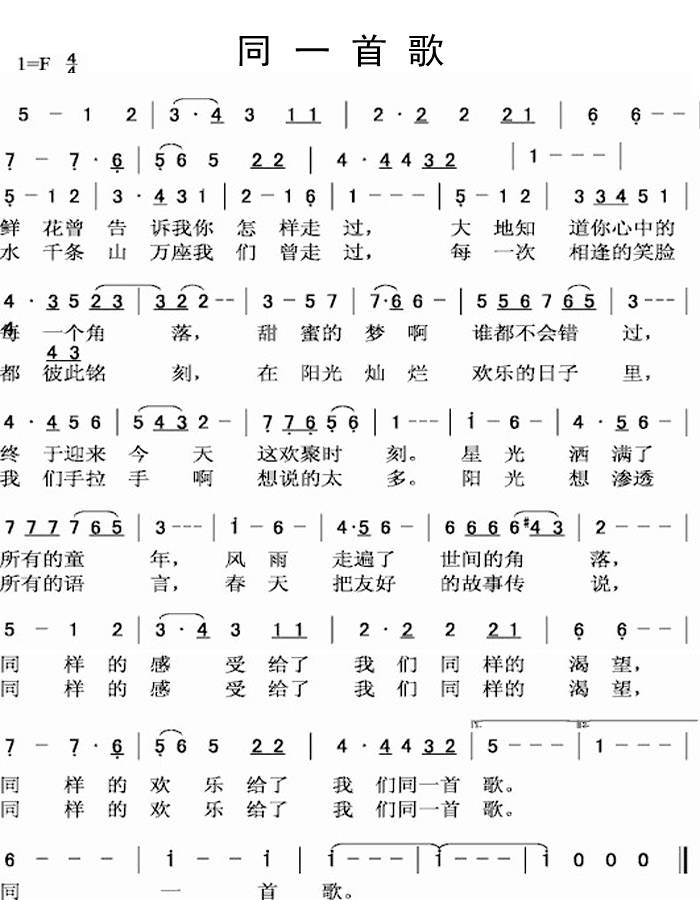 同一首歌
1=F 4/4
5 - 1 2 | 3 · 4 3 1 1 | 2 · 2 2 2 1 | 6 6 - - |
7 - 7 · 6 | 5 6 5 2 2 | 4 · 4 4 3 2 | 1 - - - |
5 - 1 2 | 3 · 4 3 1 | 2 - 1 6 | 1 - - - | 5 - 1 2 | 3 3 4 5 1 |
鲜 花曾 告 诉我你 怎 样走 过， 大 地知 道你心中的
水 千条 山 万座我 们 曾走 过， 每 一次 相逢的笑脸
4 · 3 5 2 3 | 3 2 2 - - | 3 - 5 7 | 7 · 6 6 - | 5 5 6 7 6 5 | 3 - - - |
4
每 一个角 落， 甜 蜜的 梦 啊 谁都不会错 过，
4 3
都 彼此铭 刻， 在 阳光 灿 烂 欢乐的日子 里，
4 · 4 5 6 | 5 4 3 2 - | 7 7 6 5 5 | 1 - - - | i - 6 - | 4 · 5 6 - |
终 于迎来 今 天 这欢聚时 刻。 星 光 洒 满了
我 们手拉 手 啊 想说的太 多。 阳光 想 渗透
7 7 7 7 6 5 | 3 - - - | i - 6 - | 4 · 5 6 - | 6 6 6 6 #4 3 | 2 - - - |
所有的童 年， 风 雨 走遍了 世间的角 落，
所有的语 言， 春 天 把友好 的故事传 说，
5 - 1 2 | 3 · 4 3 1 1 | 2 · 2 2 2 1 | 6 6 - - |
同 样 的 感 受 给了 我 们 同 样的 渴 望，
同 样 的 感 受 给了 我 们 同 样的 渴 望，
1. 2.
7 - 7 · 6 | 5 6 5 2 2 | 4 · 4 4 3 2 | 5 - - - | 1 - - - |
同 样 的 欢 乐 给了 我 们同一首 歌。
同 样 的 欢 乐 给了 我 们同一首 歌。
6 - - - | i - - i | i - - - | i - - - | i 0 0 0 ‖
同 一 首 歌。